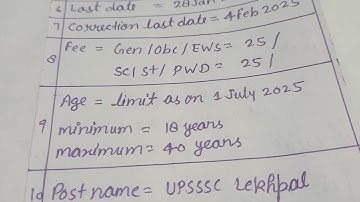 6 Last date = 28 Jan
7 Correction last date = 4 Feb 2025
8 Fee = Gen/obc/EWS = 25/
SC/St/PWD = 25/
9 Age = limit as on 1 July 2025
minimum = 18 years
maximum = 40 years
10 Post name = UPSSSC Lekhpal